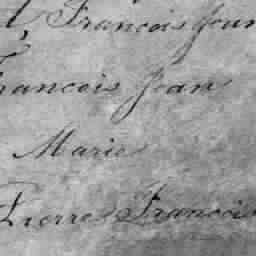 François
François Jean
Marie
Pierre François